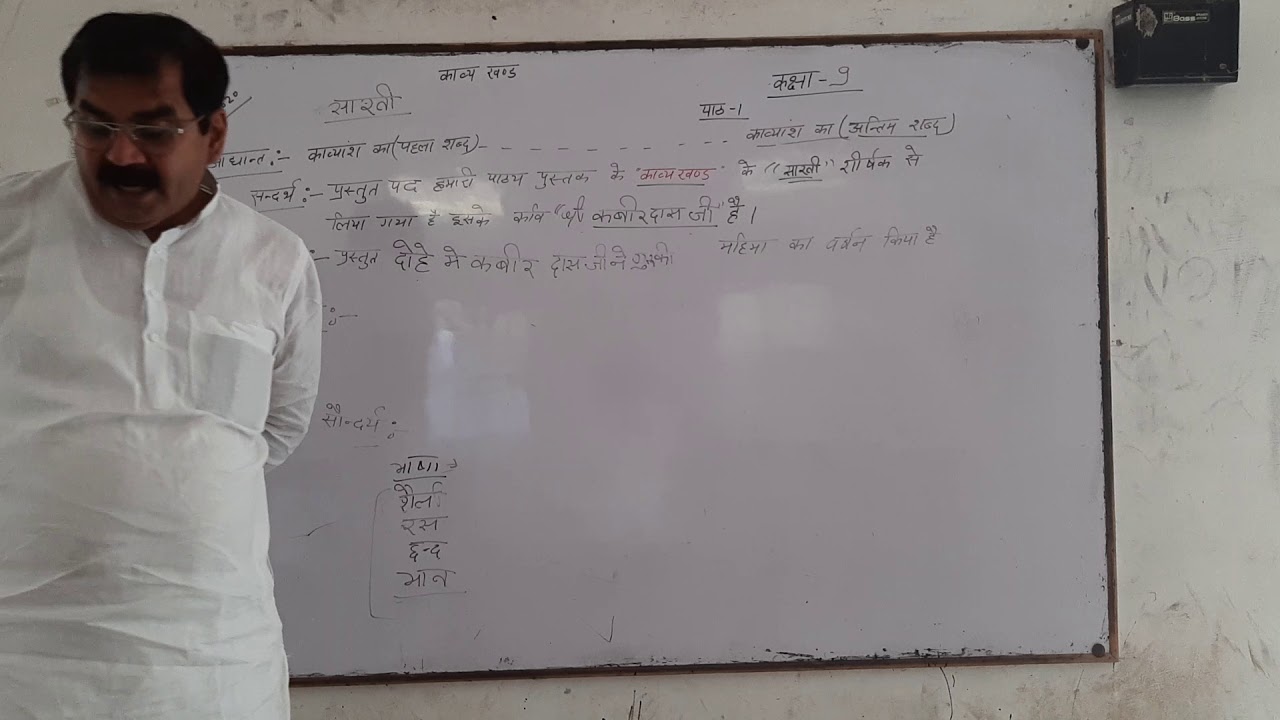 काव्य खण्ड
कक्षा - 9
साखी
पाठ -1
काव्यांश का (पहला शब्द) - - - - - - - - - काव्यांश का (अन्तिम शब्द)
सन्दर्भ :- प्रस्तुत पद हमारी पाठ्य पुस्तक के "काव्यखण्ड" के "साखी" शीर्षक से
लिया गया है इसके कवि "श्री कबीरदास जी" है।
:- प्रस्तुत दोहे मे कबीर दास जी ने गुरु की महिमा का वर्णन किया है
:-
सौन्दर्य :
भाषा
शैली
रस
छन्द
Boss